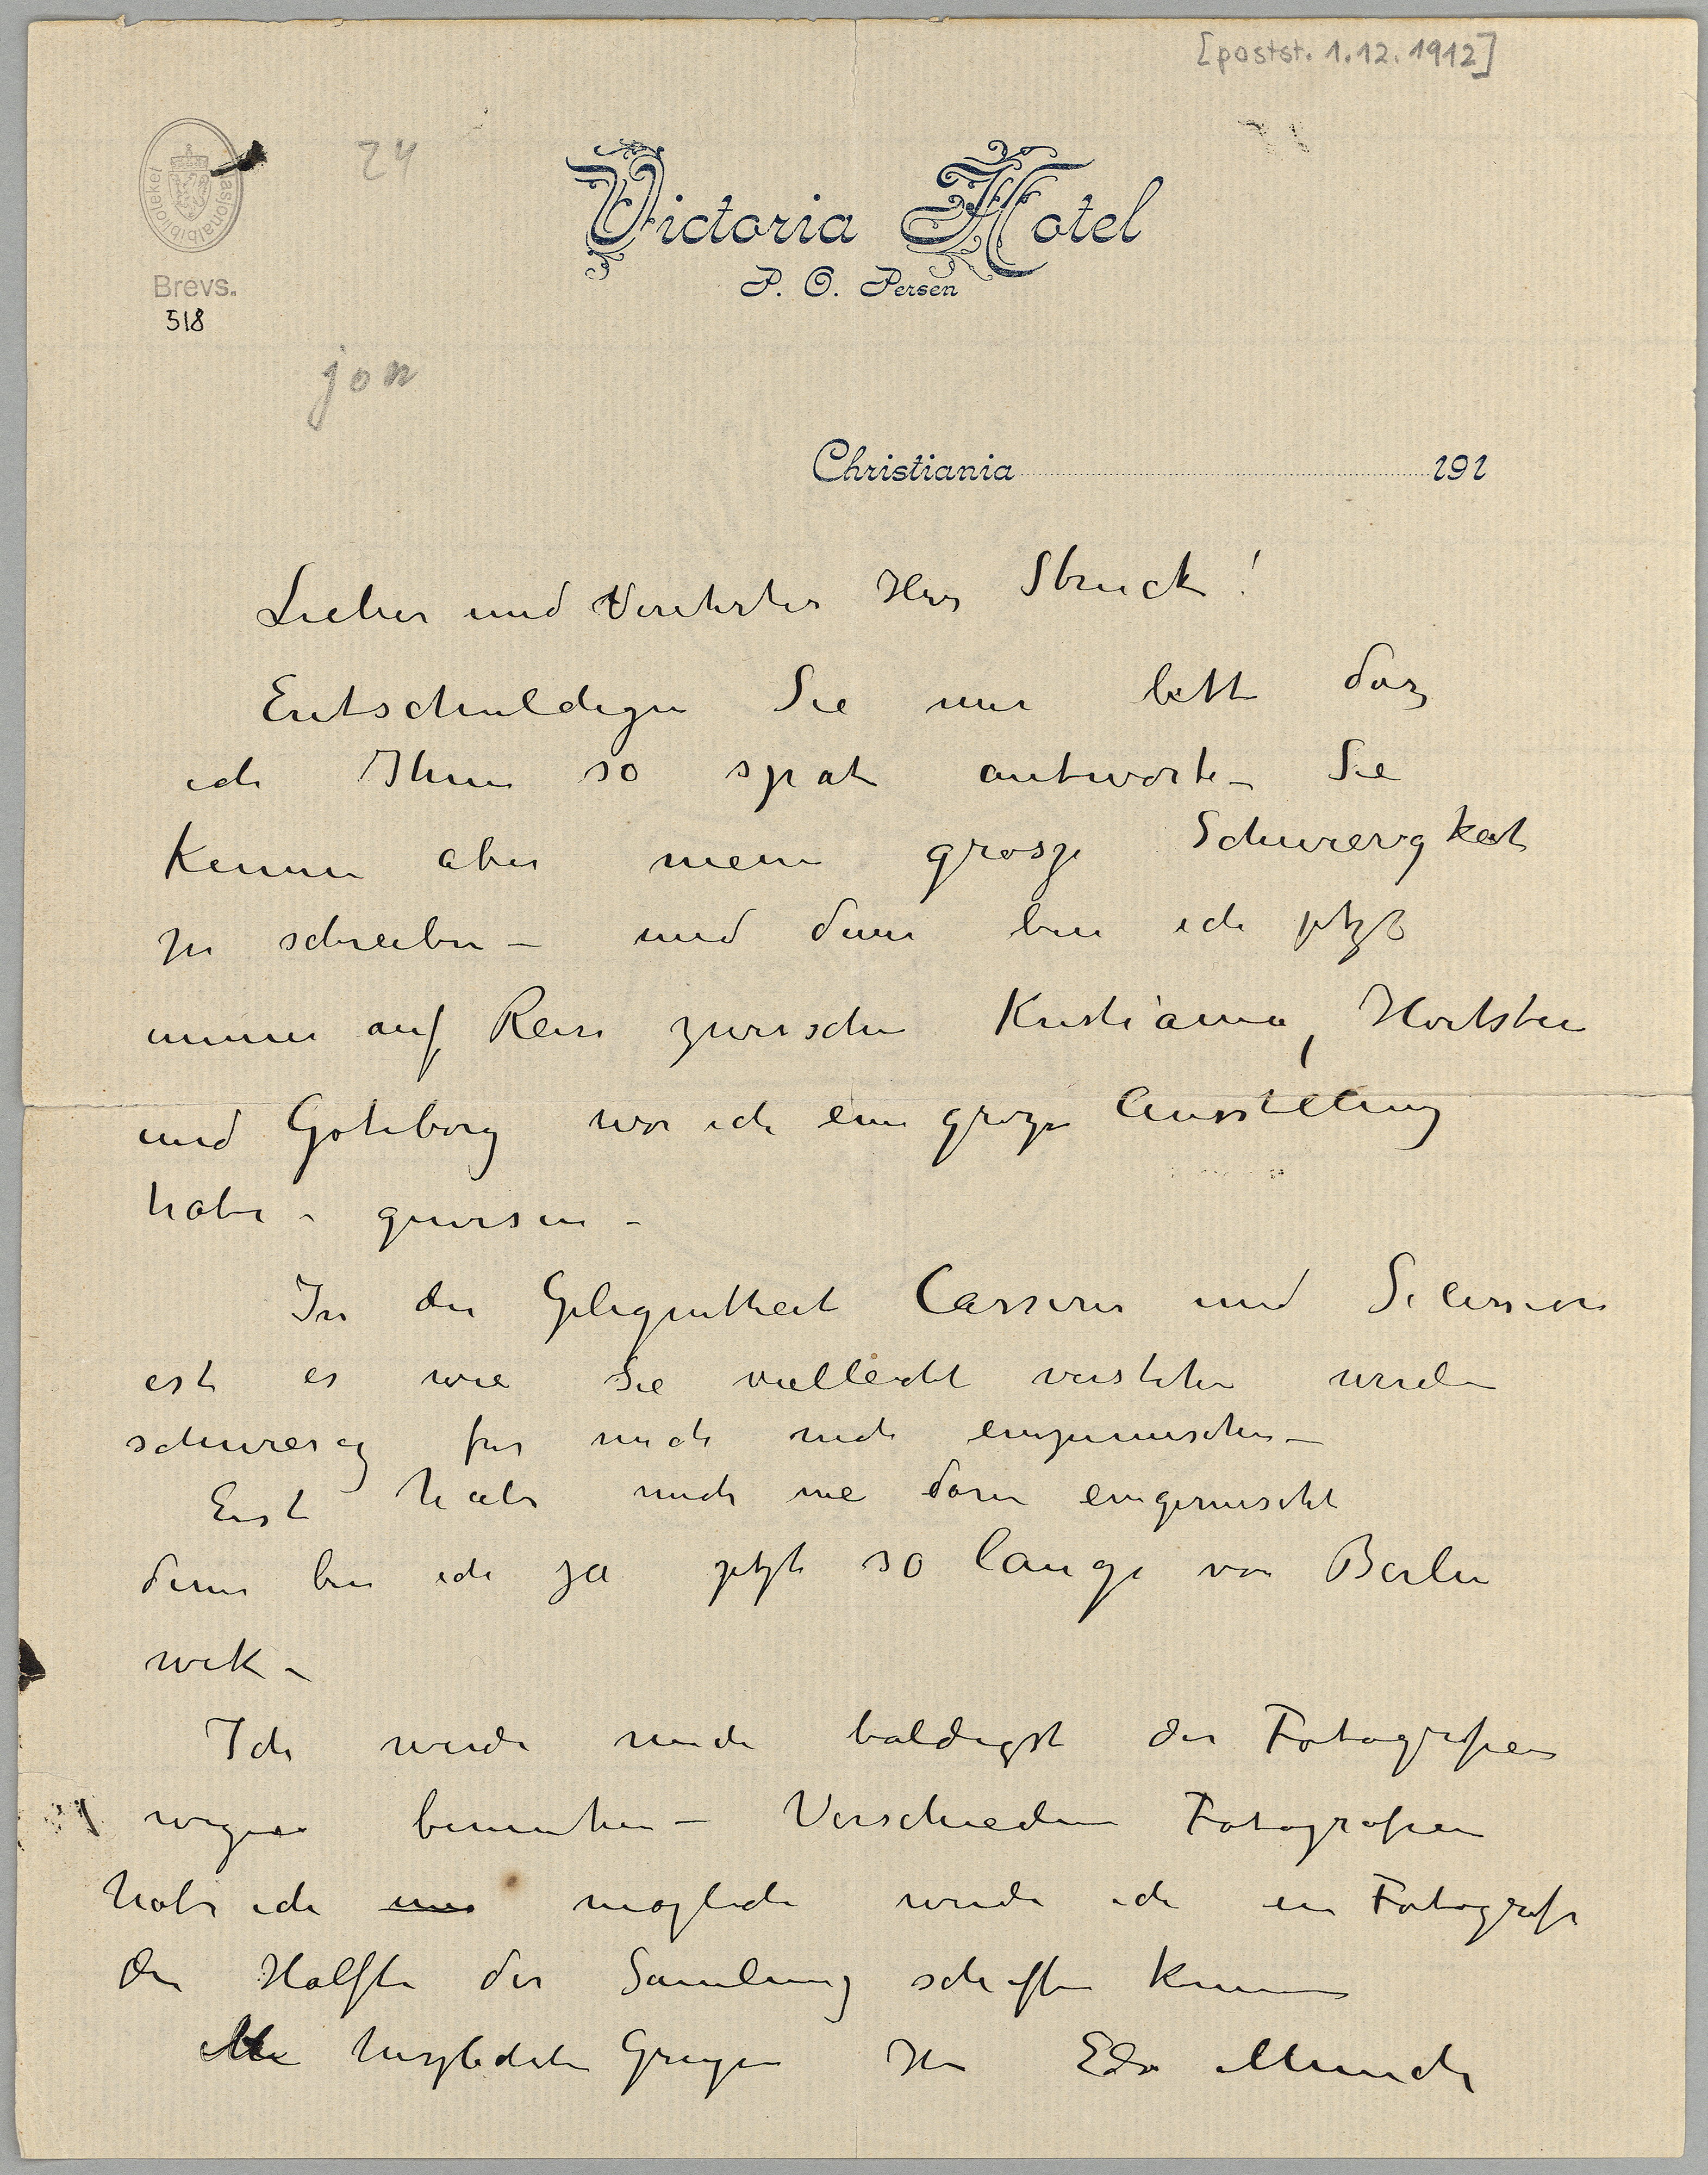 [postst. 1.12.1912]
24
Nasjonalbiblioteket
Brevs.
518
Victoria Hotel
P. O. Persen
jon
Christiania 191
Lieber und Verehrter Herr Struck!
Entschuldigen Sie mir bitte dasz
ich Ihnen so spat antworte – Sie
Kennen aber meine grosze Schwierigkeit
zu schreiben – und dann bin ich jetzt
immer auf Reise zwischen Kristiania, Hvitsten
und Goteborg wo ich eine groze Ausstellung
habe – gewesen –
In der Gelegentheit Cassirer und Secession
ist es wie Sie vielleicht verstehen werden
schwierig fur mich mich einzumischen –
Erst habe mich nie darin eingemischt
dann bin ich ja jetzt so lange von Berlin
wek –
Ich werde mich baldigst der Fotografien
wegen bemuhen – Verschiedene Fotografien
habe ich moglich werde ich in Fotografi
die Halfte der Samlung schaffen konnen
Mit herzlichsten Gruzen Ihr Edv Munch